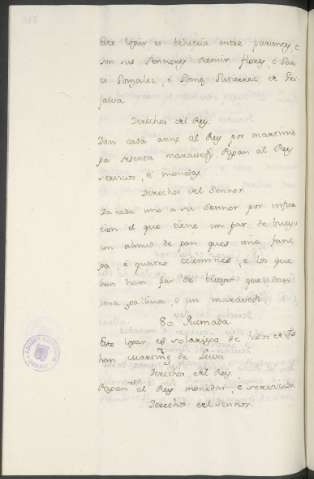 Este logar es behetria entre parientes, e
son sus Sennores Remir flores, e Die
Gonzalez, e Donq Gutierrez de Gri
jalva
Derechos del Rey
Dan cada anno al Rey por martinie
ga setenta maravedis Pagan al Rey
servicios, e monedas
Derechos del Sennor
Da cada uno a su Sennor por infur
cion el que tiene un par de bueys
un almud de pan que es una fane
ga e quatro celemines, e los que
non han par de bueys que dan
una gallina, o un maravedi
80 Quemada
Este logar es solariego de
han Martinez de Leiva
Derechos del Rey
Pagan al Rey monedas, e servicios
Derechos del Sennor